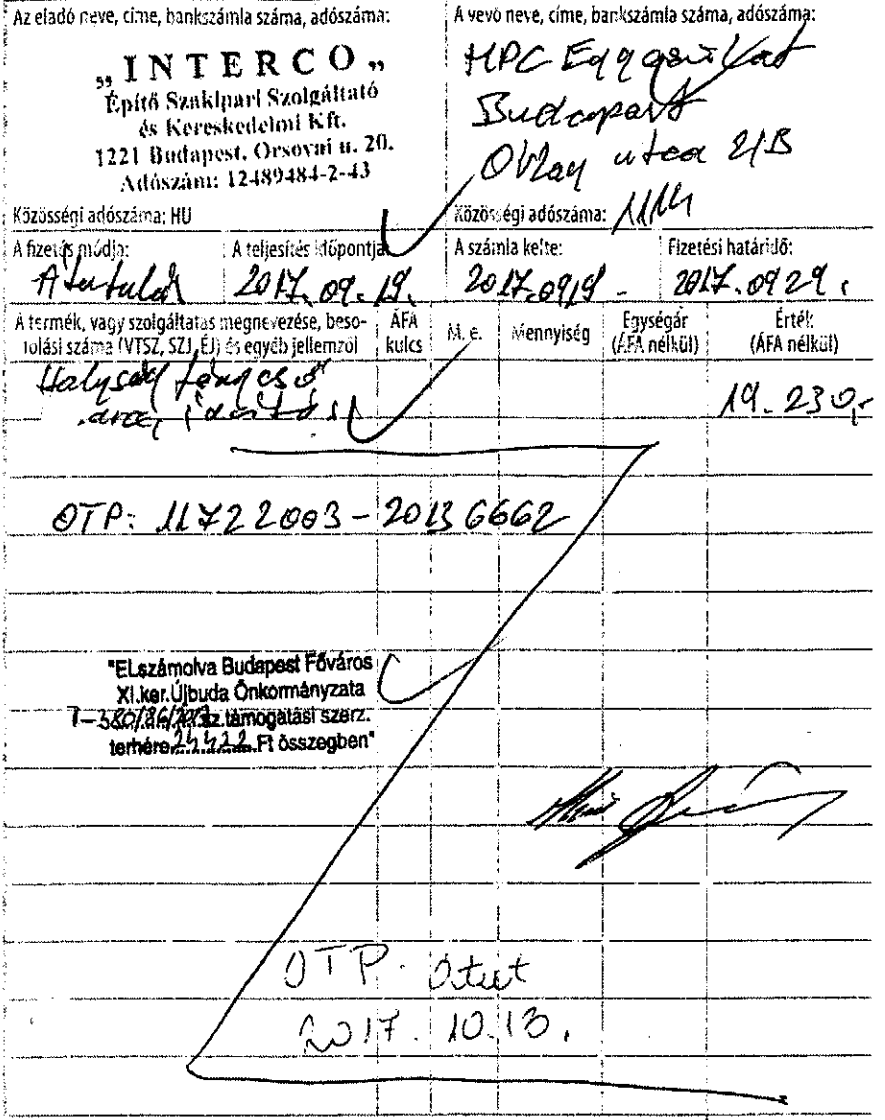 Az eladó neve, címe, bankszámla száma, adószáma:
„INTERCO„
Építő Szakipari Szolgáltató
és Kereskedelmi Kft.
1221 Budapest, Orsovai u. 20.
Adószám: 12489484-2-43
Közösségi adószáma: HU
A vevő neve, címe, bankszámla száma, adószáma:
HPC
Budapest
utca 2/B
Közösségi adószáma: 1114
A fizetés módja:
Átutalás
A teljesítés időpontja:
2017.09.19.
A számla kelte:
2017.0919.
Fizetési határidő:
2017.0929.
A termék, vagy szolgáltatás megnevezése, beso-
rolási száma (VTSZ, SZJ, ÉJ) és egyéb jellemzői
ÁFA kulcs
M. e.
Mennyiség
Egységár (ÁFA nélkül)
Érték (ÁFA nélkül)
fénycső
19.230,-
OTP: 11722003-20136662
"ELszámolva Budapest Főváros
XI.ker.Újbuda Önkormányzata
sz.támogatási szerz.
terhére 24422 Ft összegben"
OTP. átut
2017.10.13.